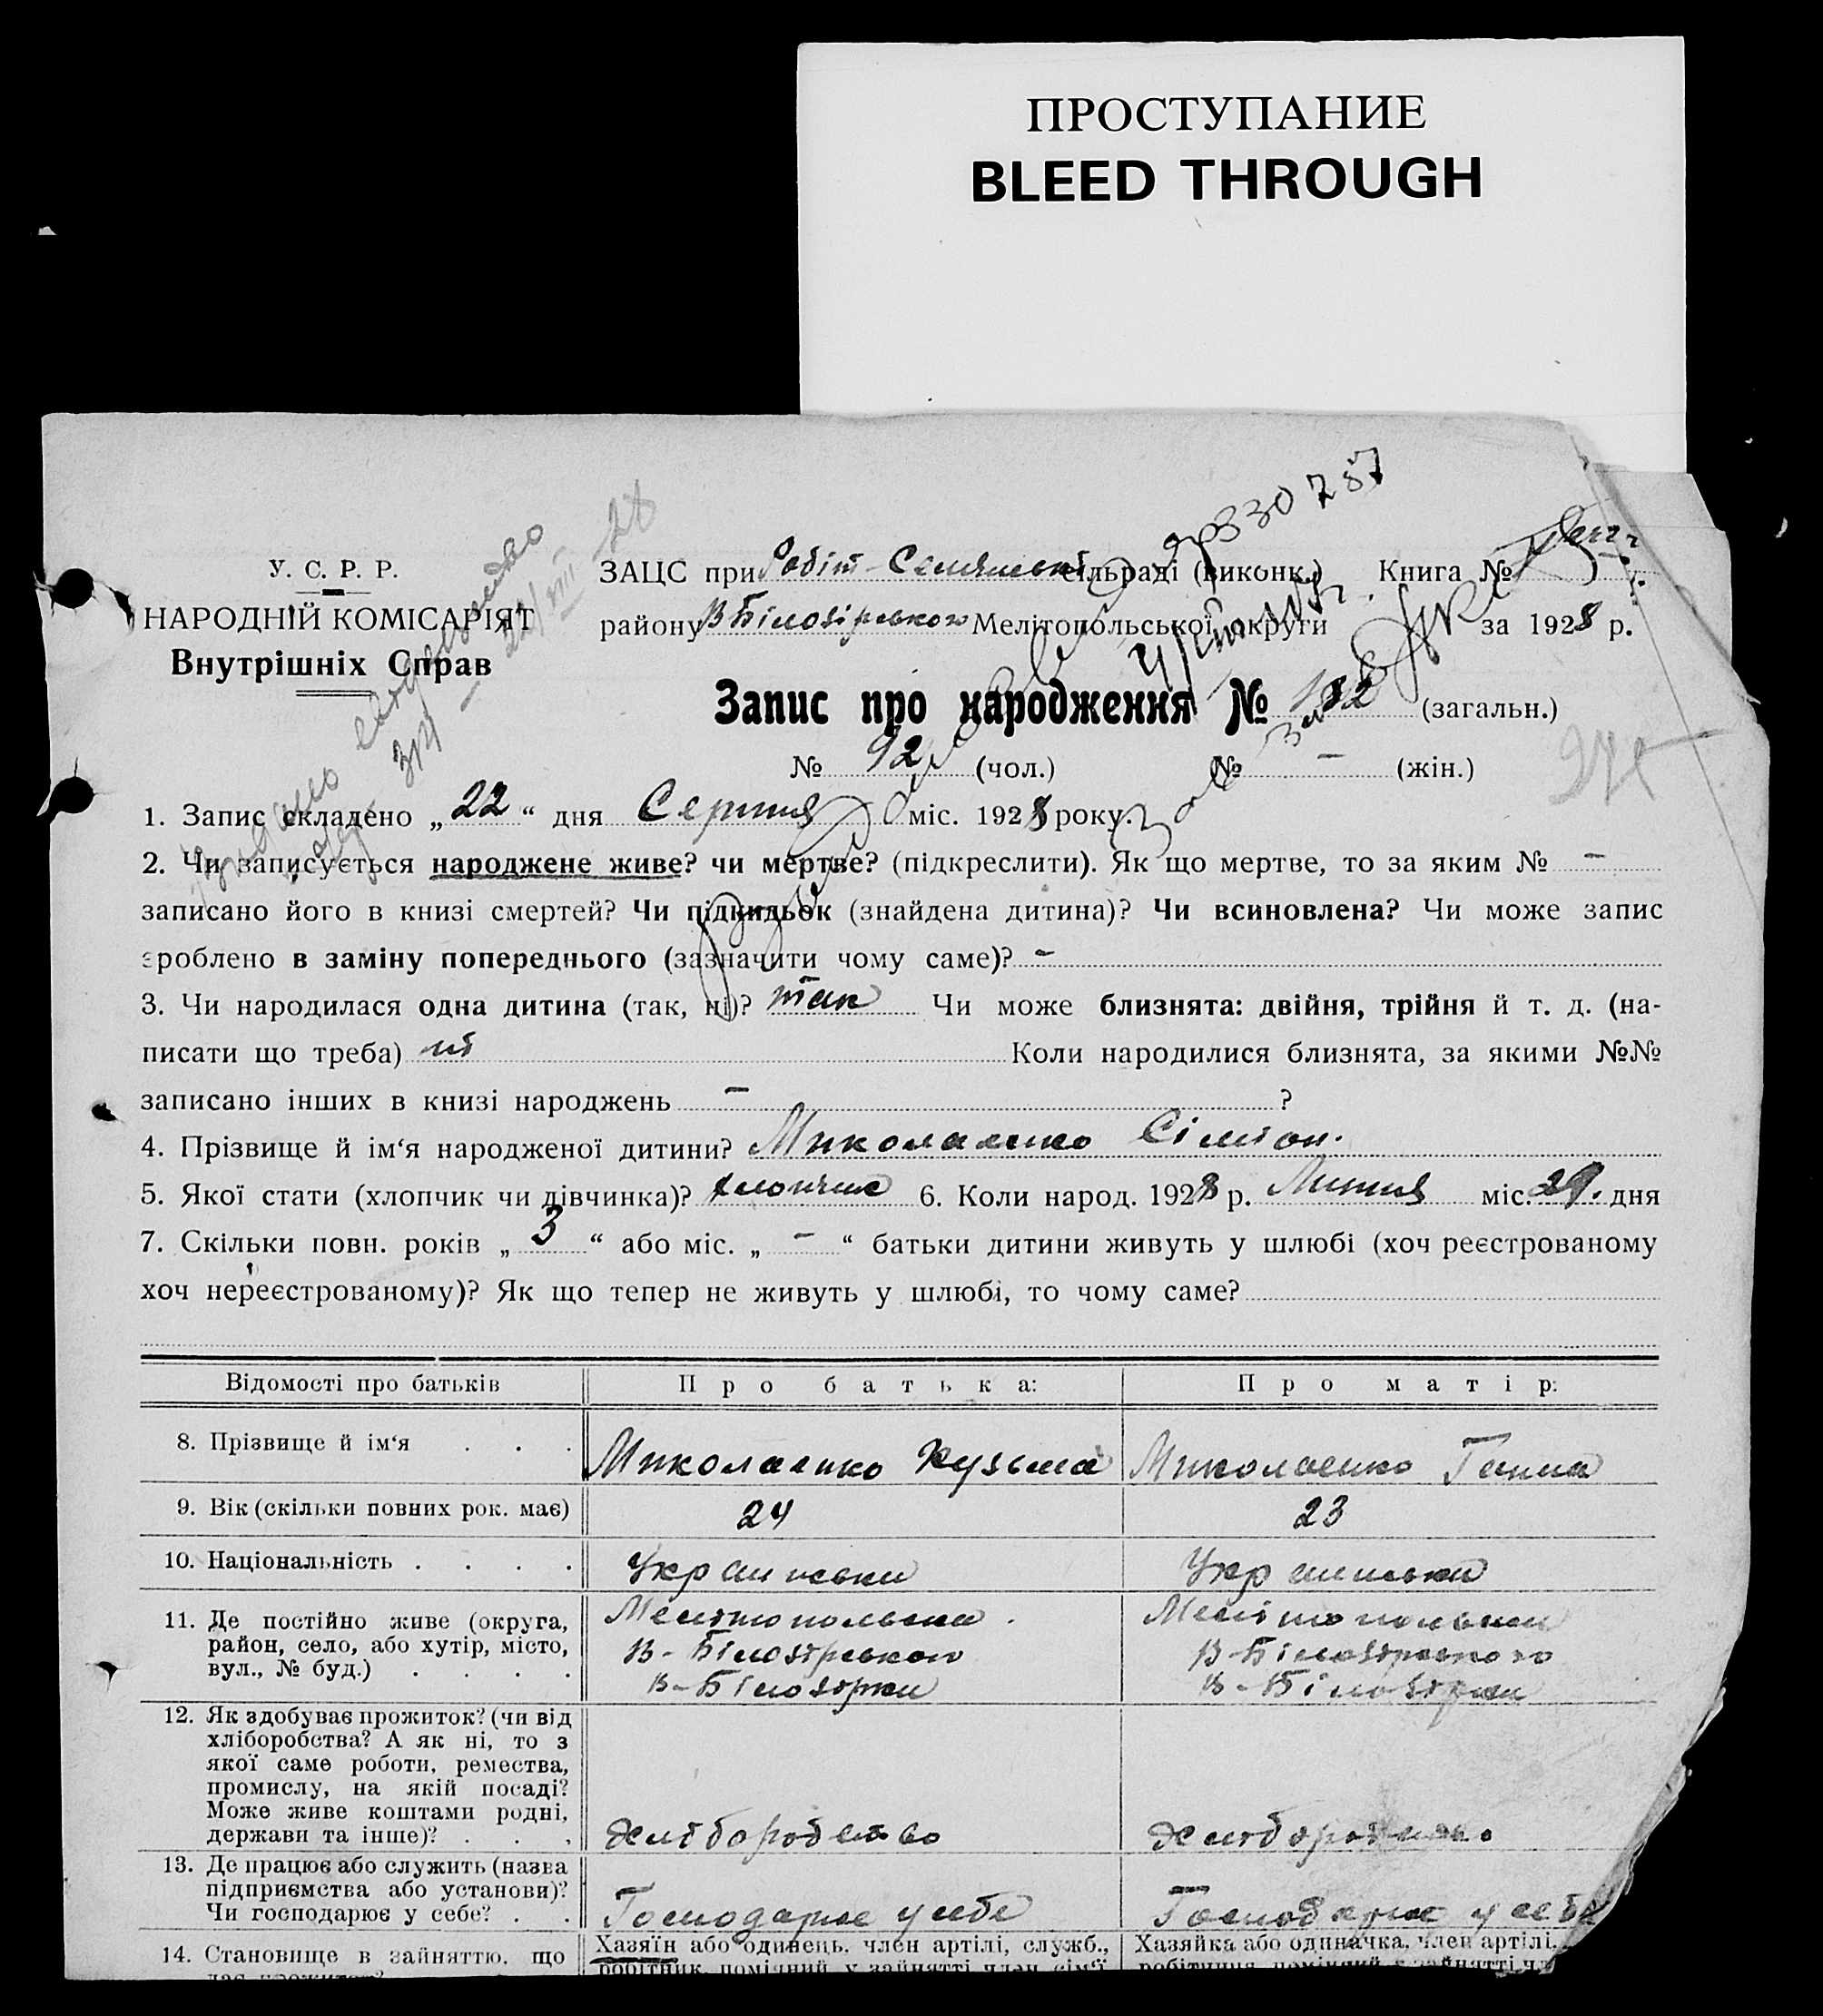 ПРОСТУПАНИЕ
BLEED THROUGH
У. С. Р. Р.
НАРОДНІЙ КОМІСАРІЯТ
Внутрішніх Справ
ЗАЦС при сільраді (виконк.) Книга №
району В Білозірського Мелітопольської округи за 1928 р.
Запис про народження № 182 (загальн.)
№ 92 (чол.) № – (жін.)
1. Запис складено „22“ дня Серпня міс. 1928 року.
2. Чи записується народжене живе? чи мертве? (підкреслити). Як що мертве, то за яким № –
записано його в книзі смертей? Чи підкидьок (знайдена дитина)? Чи всиновлена? Чи може запис
зроблено в заміну попереднього (зазначити чому саме)? –
3. Чи народилася одна дитина (так, ні)? так Чи може близнята: двійня, трійня й т. д. (на-
писати що треба) ні Коли народилися близнята, за якими №№
записано інших в книзі народжень – ?
4. Прізвище й ім‘я народженої дитини? Миколаенко Сіміон.
5. Якої стати (хлопчик чи дівчинка)? хлопчик 6. Коли народ. 1928 р. Липня міс. 29. дня
7. Скільки повн. років „ 3 “ або міс. „ – “ батьки дитини живуть у шлюбі (хоч реєстрованому
хоч нереєстрованому)? Як що тепер не живуть у шлюбі, то чому саме?
Відомості про батьків Про батька: Про матір:
8. Прізвище й ім‘я . . . Миколаенко Кузьма Миколаенко Ганна
9. Вік (скільки повних рок. має) 24 23
10. Національність . . . . Українськи Українськи
11. Де постійно живе (округа, Мелітопольска. Мелітопольска
район, село, або хутір, місто, В-Білозірського В-Білозірського
вул., № буд.) . . . . В-Білозірки В-Білозірки
12. Як здобуває прожиток? (чи від
хліборобства? А як ні, то з
якої саме роботи, ремества,
промислу, на якій посаді?
Може живе коштами родні,
держави та інше)? . . . хліборобство хліборобство
13. Де працює або служить (назва
підприємства або установи)?
Чи господарює у себе? . . Господарює у себе Господарює у себе
14. Становище в зайняттю, що Хазяїн або одинець, член артілі, служб., Хазяйка або одиначка, член артілі,
дає прожиток? робітник, помічний у зайнятті член сім‘ї робітниця, помічний у зайнятті